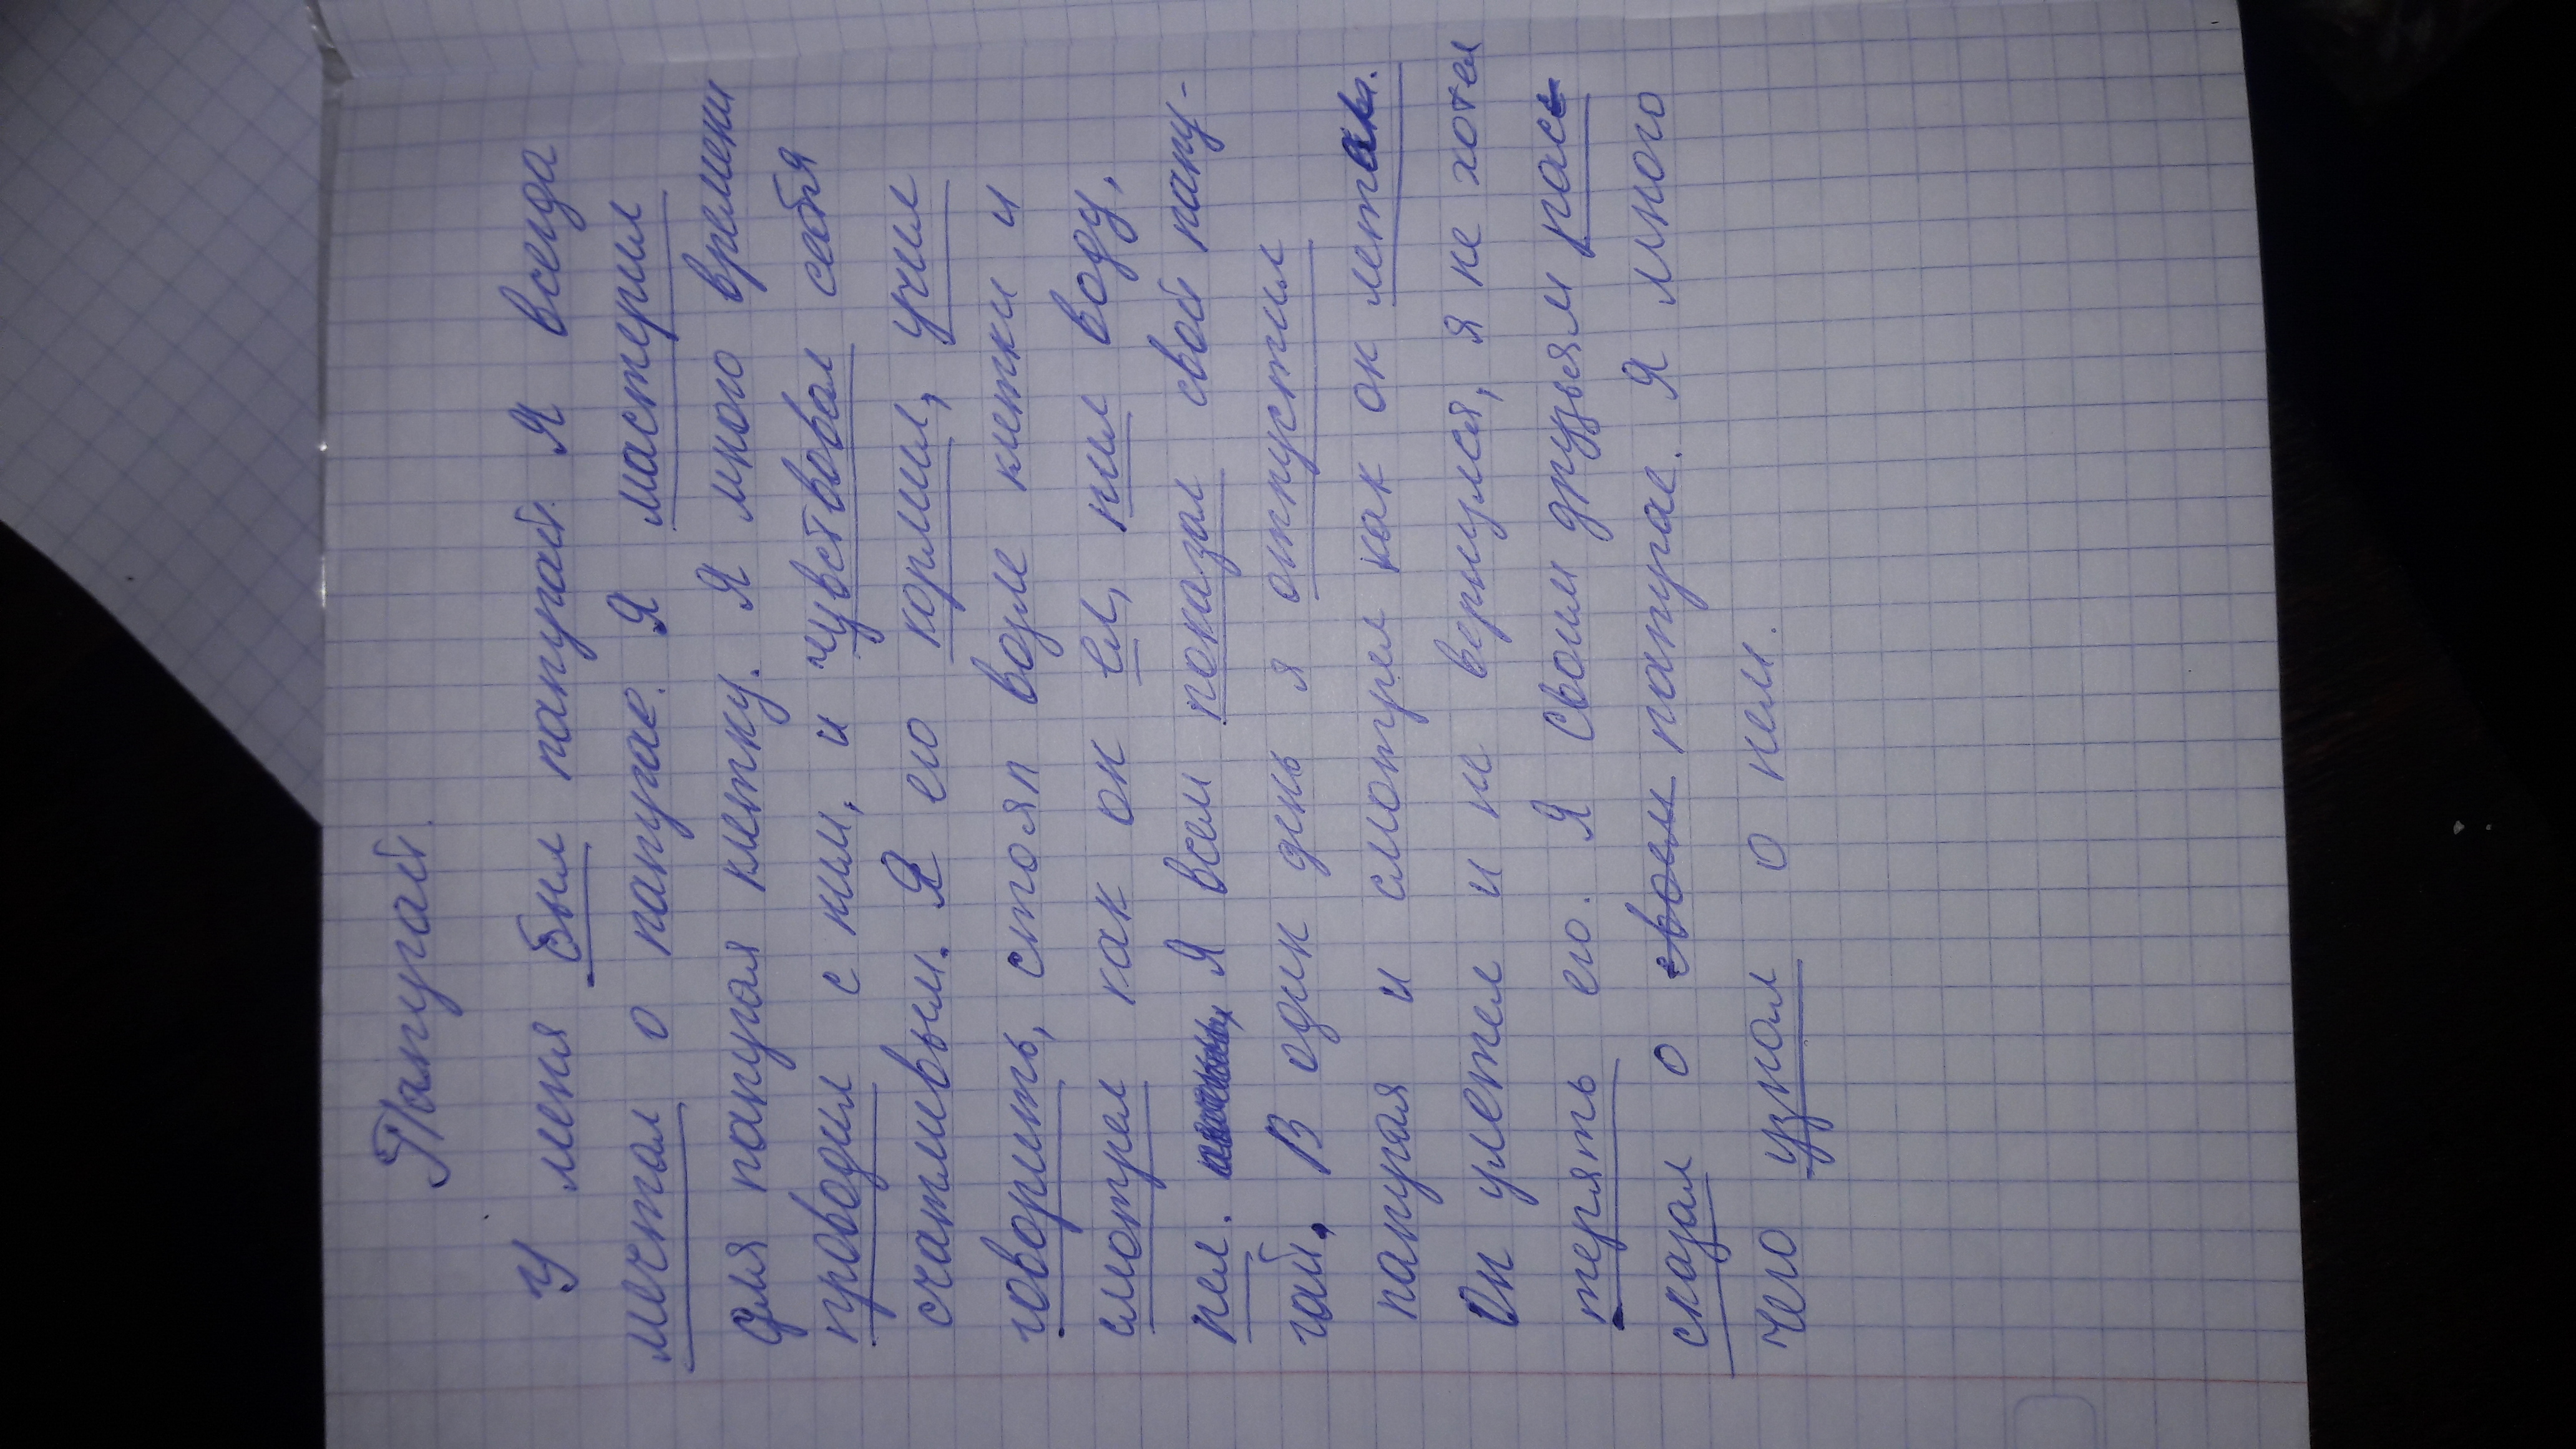 Попугай.
У меня был папугай. Я всегда
мечтал о папугае. Я мастерил
для папугая клетку. Я много времени
проводил с ним, и чувствовал себя
счатливым. Я его кормил, учил
говорить, стоял возле клетки и
смотрел как он ел, пил воду,
пел. Я всем показал свой папу-
гай. В один день я отпустил
папугая и смотрел как он летал.
Он улетел и не вернулся, я не хотел
терять его. Я своим друзьям расс
сказал о своем папугае. Я много
чего узнал о нем.